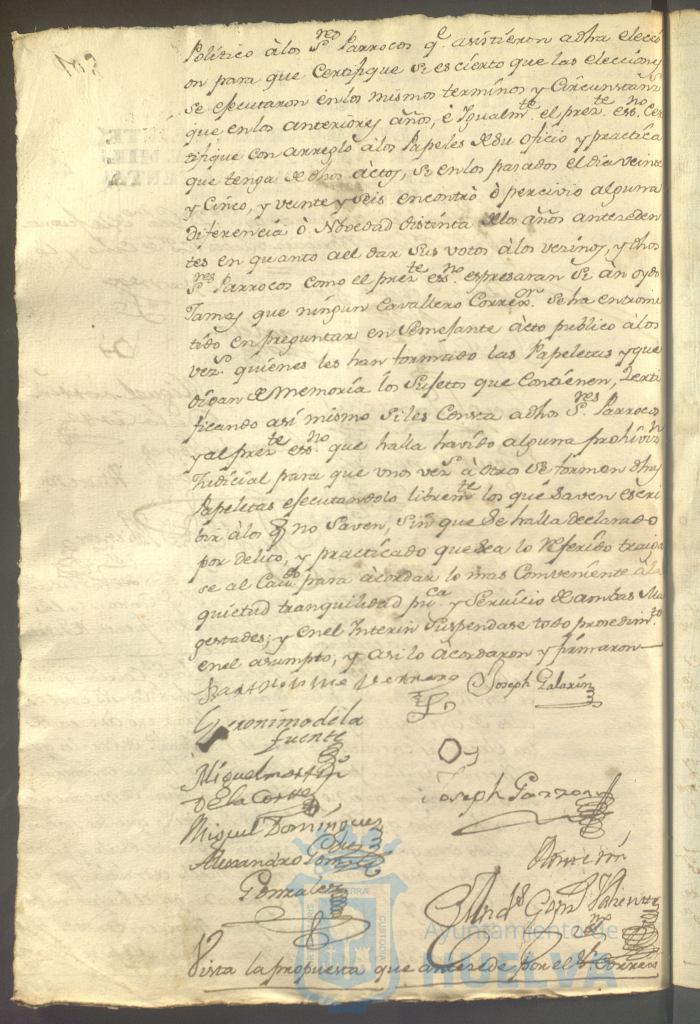 Politico à los S.res Parrocos q.e asistieron adha elecci
on para que Certifique Si es cierto que las eleccions
se ejecutaron en los mismos terminos y Circunstan.s
que en los anteriores años, è Igualm.te el prez.te ess.no Cer
tifique con arreglo à los Papeles de su oficio y practica
que tenga de dhos àctos, Si en los pasados el dia veinte
y Cinco, y veinte y seis encontrò ò percivio alguna
Diferencia ò Novedad distinta de los años anteseden
tes en quanto a el dar Sus votos à los vezinos, y dhos
S.res Parrocos como el prez.te ess.no espresaran Si àn oydo
Jamas que ningun Cavallero Correx.or Se ha entrome
tido en preguntar en Semejante àcto publico à los
vez.s quienes les han formado las Papeletas y que
digan de Memoria los Sujetos que Contienen, Zerti
ficando asi mismo Si les Consta adhos S.res Parrocos
y al prez.te ess.no que halla havido alguna prohiviz.n
Judicial para que unos vez.s à otros Se formen dhas
Papeletas ejecutandolo librem.te los que Saven escri
bir à los q no Saven, Sin que Se halla declarado
por delito, y practicado que Sea lo Referido traiga
se al Cav.do para àcordar lo mas Comveniente à la
quietud tranquilidad pu.ca y Servicio de ambas Ma
gestades; y en el Interin Suspendase todo prosedim.to
en el asumpto, y asi lo àcordaron y firmaron
Bartholome Serrano Joseph Galarin
Geronimo de la
fuente
Miguel martin
De la Corte
Joseph Garzon
Miguel Dominguez
Alexandro Gomez
Gonzalez
Vista la propuesta que antesede por el S.r Correx.or
Ayuntamiento de
HUELVA